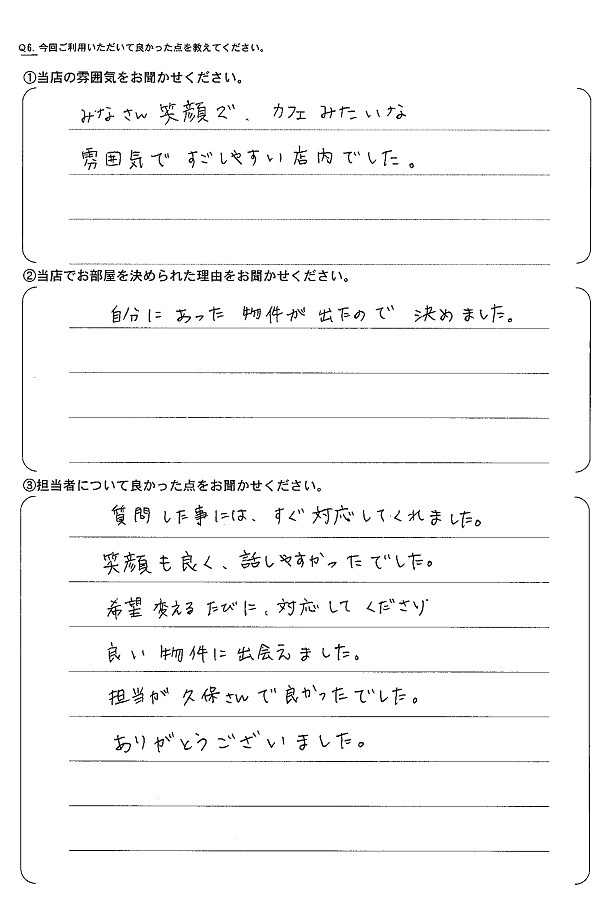 Q6. 今回ご利用いただいて良かった点を教えてください。
①当店の雰囲気をお聞かせください。
みなさん笑顔で、カフェみたいな
雰囲気ですごしやすい店内でした。
②当店でお部屋を決められた理由をお聞かせください。
自分にあった物件が出たので決めました。
③担当者について良かった点をお聞かせください。
質問した事には、すぐ対応してくれました。
笑顔も良く、話しやすかったでした。
希望変えるたびに、対応してくださり
良い物件に出会えました。
担当が久保さんで良かったでした。
ありがとうございました。